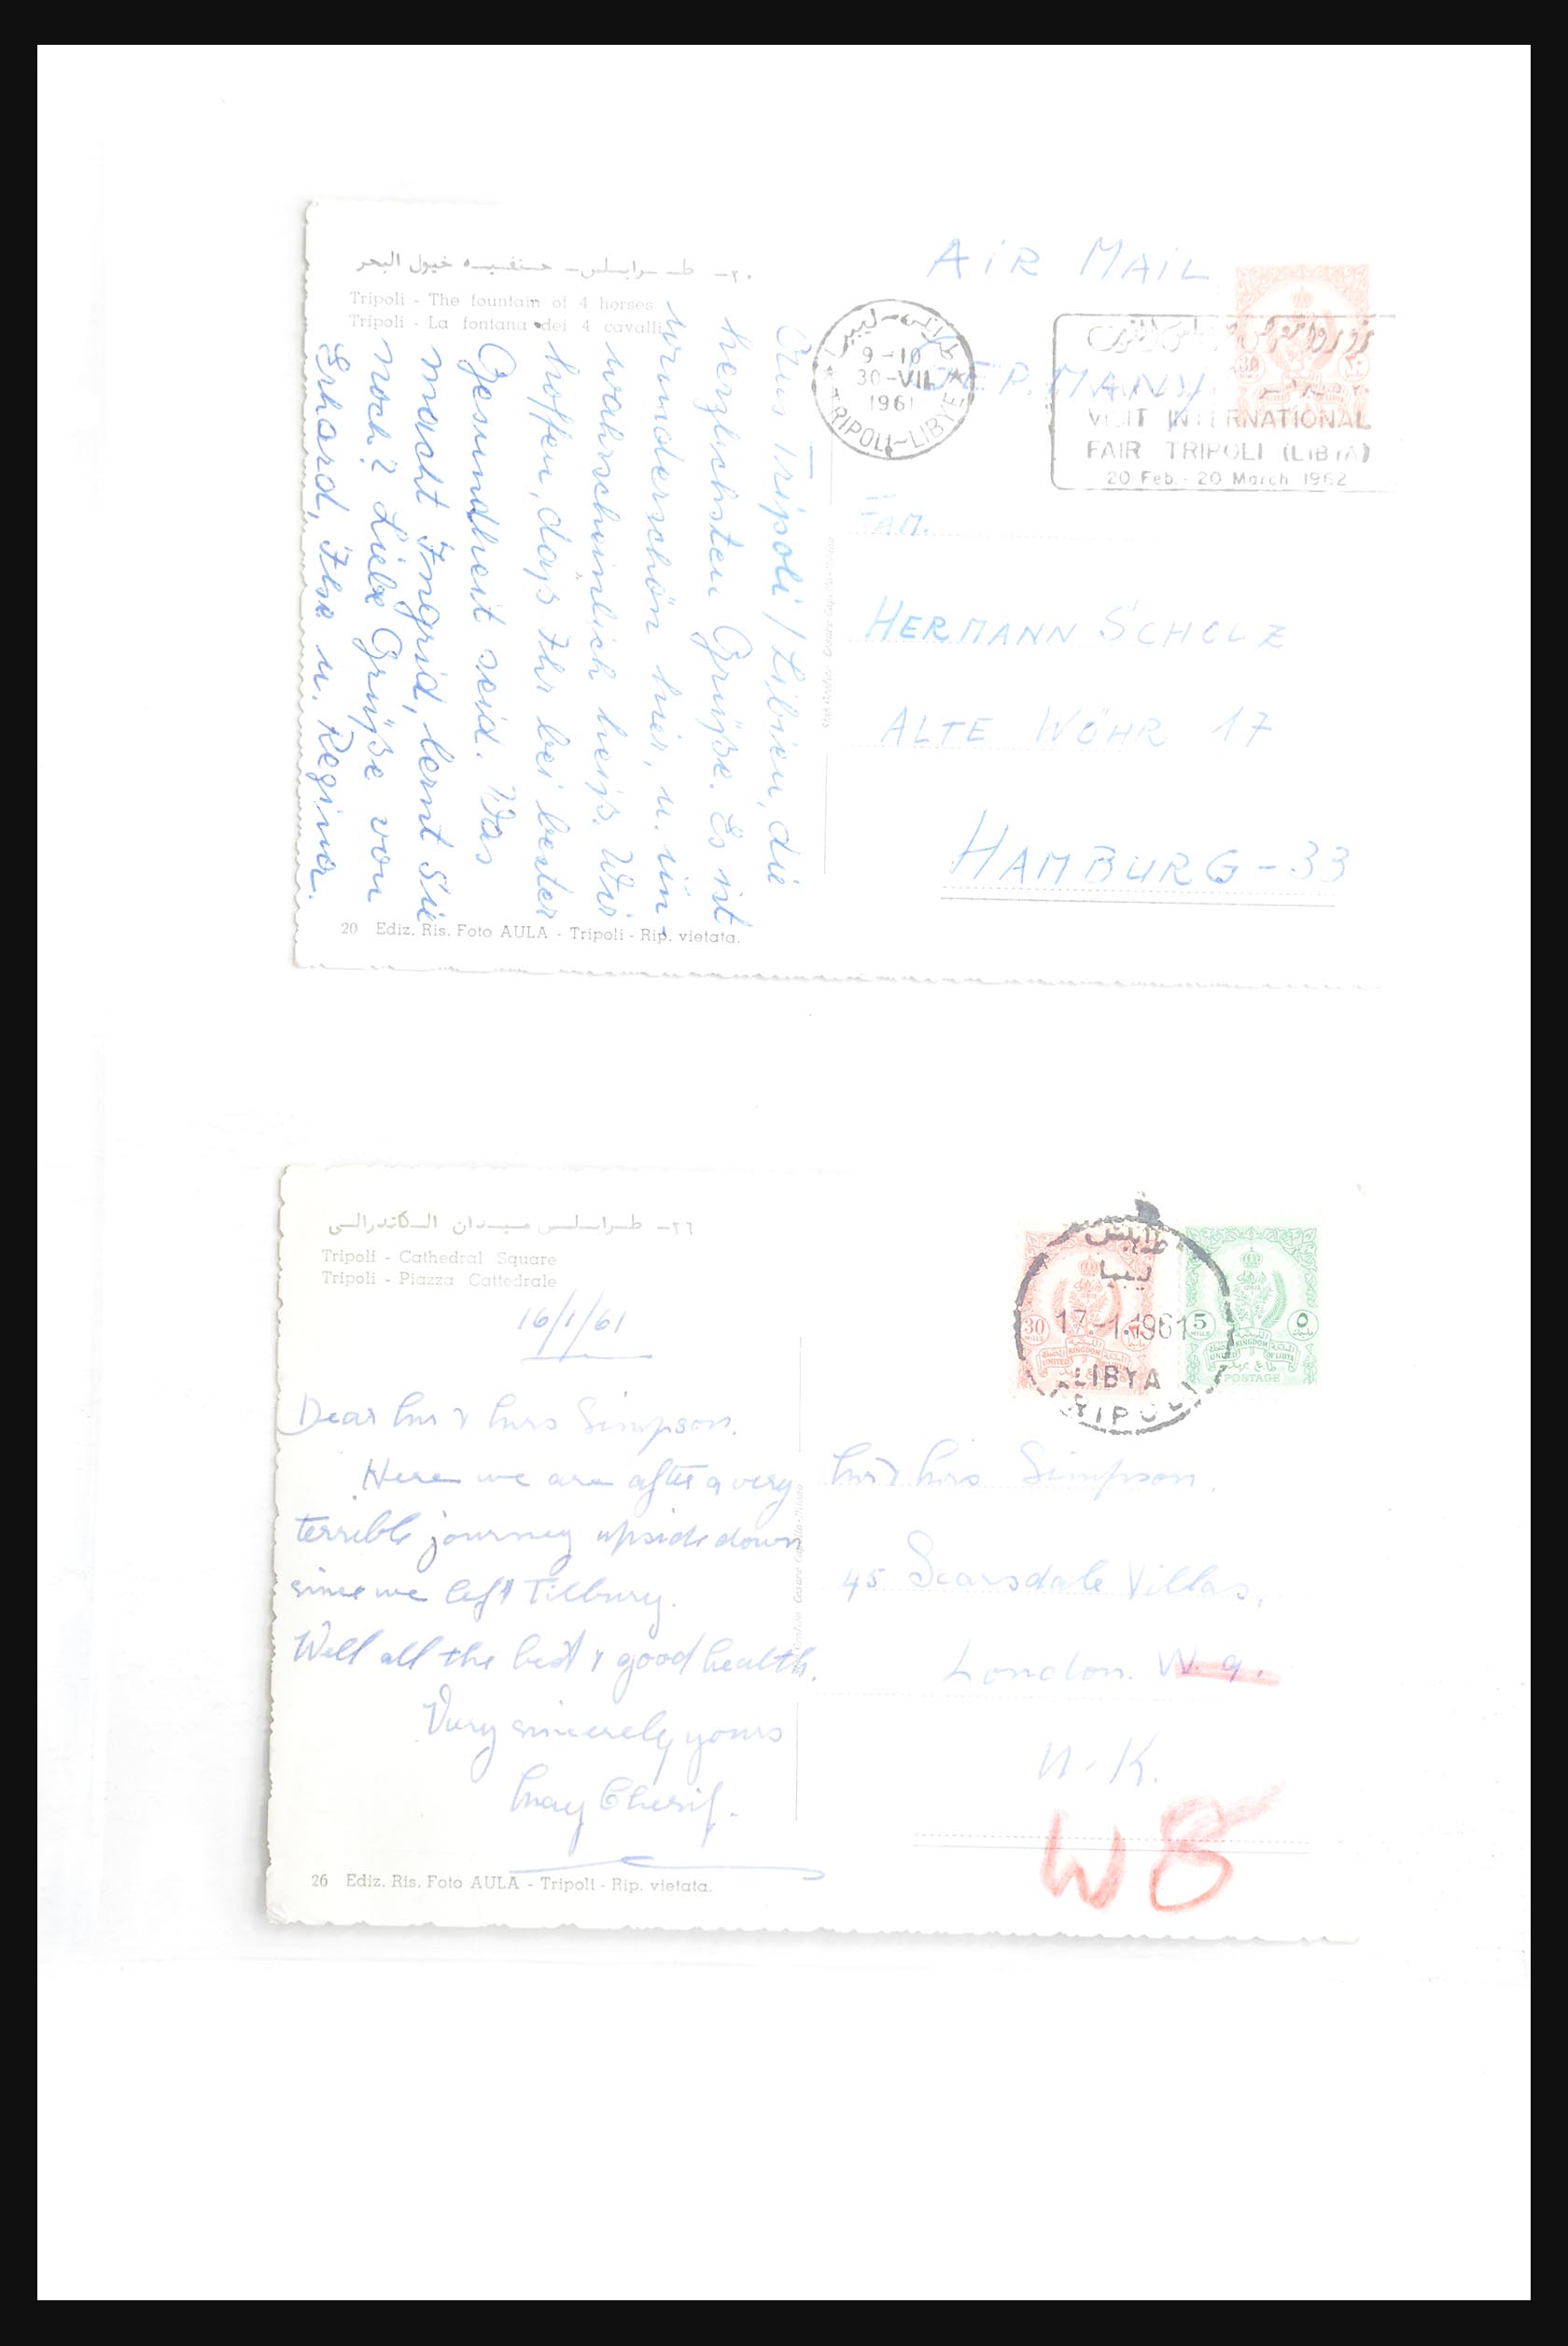 ٢٠- طــرابــلــس- حــنــفــيــه خيول البحر
Tripoli - The fountain of 4 horses
Tripoli - La fontana dei 4 cavalli
Aus Tripoli / Libien, die
herzlichsten Grüße. Es ist
wunderschön hier, u. un-
wahrscheinlich heiß. Wir
hoffen, daß Ihr bei bester
Gesundheit seid. Was
macht Ingrid, lernt Sie
noch? Liebe Grüße von
Erhard, Ilse u. Regina.
20 Ediz. Ris. Foto AULA - Tripoli - Rip. vietata.
AIR MAIL
GERMANY
9-10
30-VII
1961
TRIPOLI-LIBYE
VISIT INTERNATIONAL
FAIR TRIPOLI (LIBYA)
20 Feb. - 20 March 1962
FAM.
HERMANN SCHOLZ
ALTE WÖHR 17
HAMBURG-33
٢٦- طــرابــلــس مــيــدان الــكاتدرالــى
Tripoli - Cathedral Square
Tripoli - Piazza Cattedrale
16/1/61
Dear Mr & Mrs Simpson.
Here we are after a very
terrible journey upside down
since we left Tilbury.
Well all the best & good health.
Very sincerely yours
May Cherif.
26 Ediz. Ris. Foto AULA - Tripoli - Rip. vietata.
طرابلس
ليبيا
17.-1.1961
LIBYA
TRIPOLI
30
MILLS
UNITED KINGDOM
5
٥
MILLS
UNITED KINGDOM OF LIBYA
POSTAGE
Mr & Mrs Simpson,
45 Scarsdale Villas,
London. W. 9.
U.K.
W8